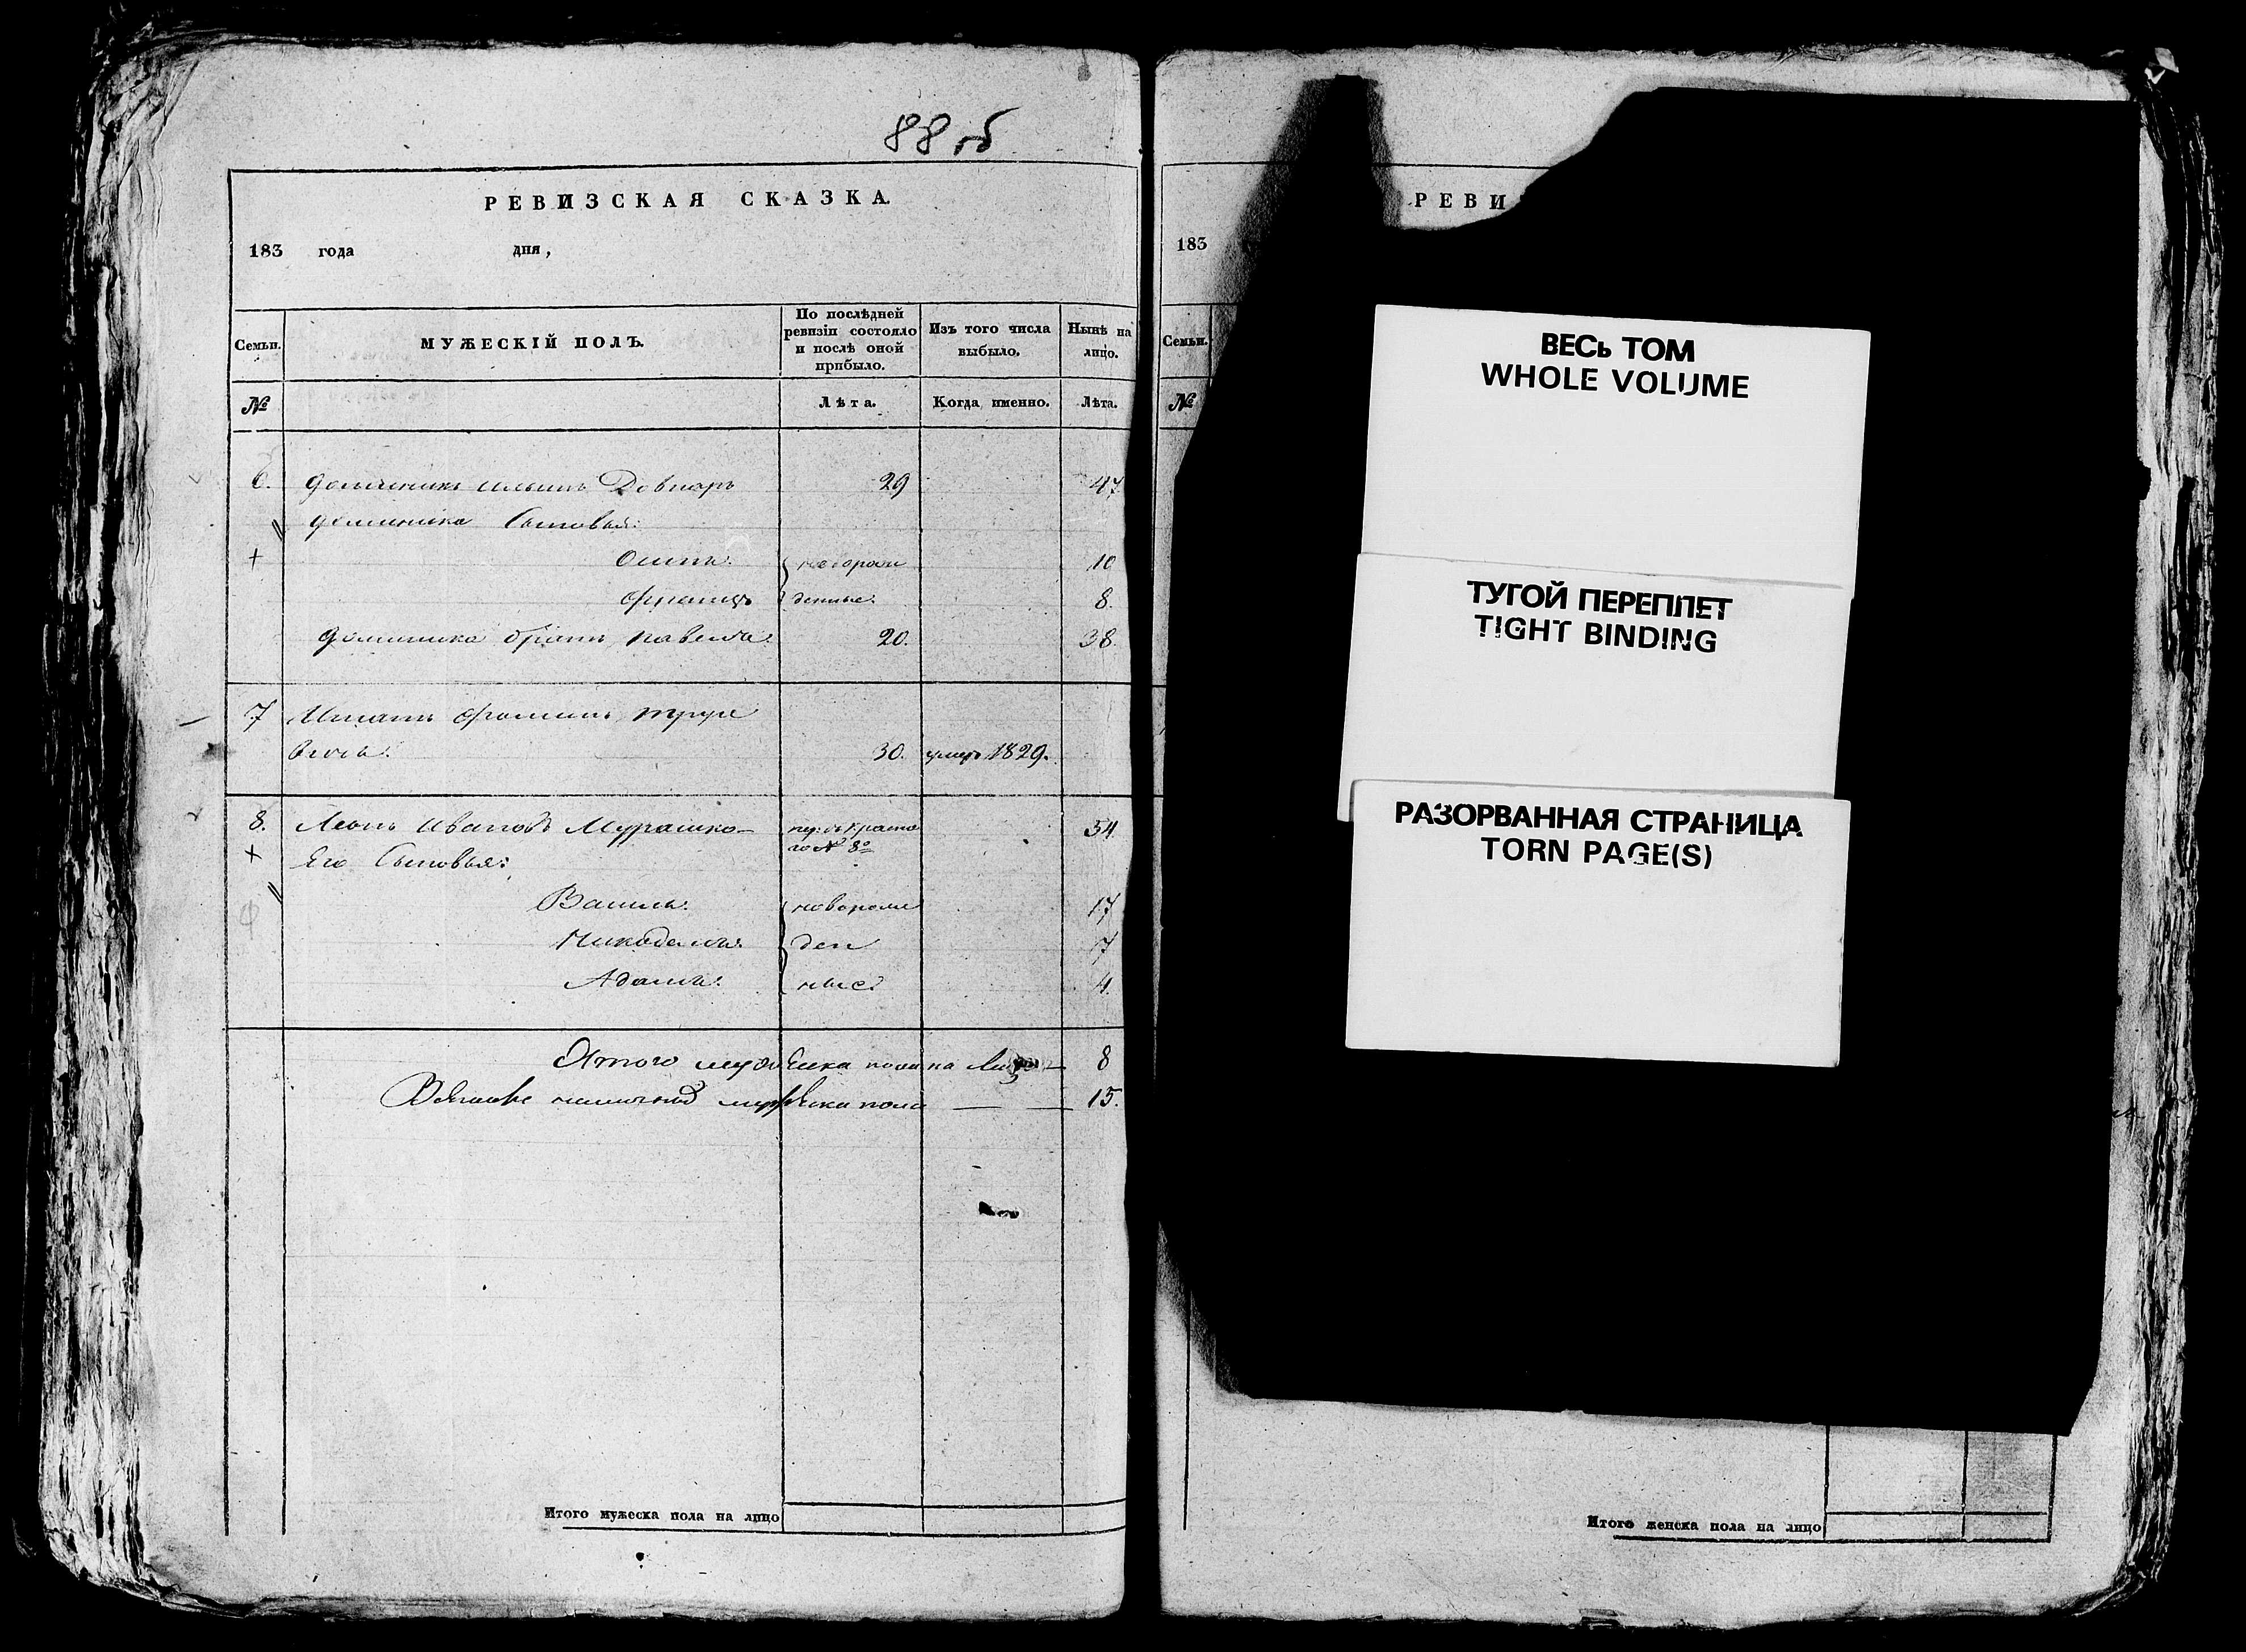 88 об
РЕВИЗСКАЯ СКАЗКА.
183 года дня,
Семьи.
МУЖЕСКІЙ ПОЛЪ.
По послѣдней
ревизіи состояло
и послѣ оной
прибыло.
Изъ того числа
выбыло.
Нынѣ на
лицо.
№
Лѣта.
Когда именно.
Лѣта.
6. Доминикъ Ильинъ Довнаръ 29 47
Доминика Сыновья:
+ Осипъ. новорож 10
Францъ денные. 8.
Доминика братъ Павелъ. 20. 38.
7 Фоминъ
вичъ. 30. умеръ 1829.
8. Леонъ Ивановъ Мурашко 54
№ 8º
+ Его Сыновья:
Василь. новорож 17
Никодимъ. ден 7
Адамъ. ные. 4.
Итого мужеска пола на Лицо 8
наличнаго мужеска пола 15.
Итого мужеска пола на лицо
РЕВИ
183
Семьи.
№
ВЕСЬ ТОМ
WHOLE VOLUME
ТУГОЙ ПЕРЕПЛЕТ
TIGHT BINDING
РАЗОРВАННАЯ СТРАНИЦА
TORN PAGE(S)
Итого женска пола на лицо